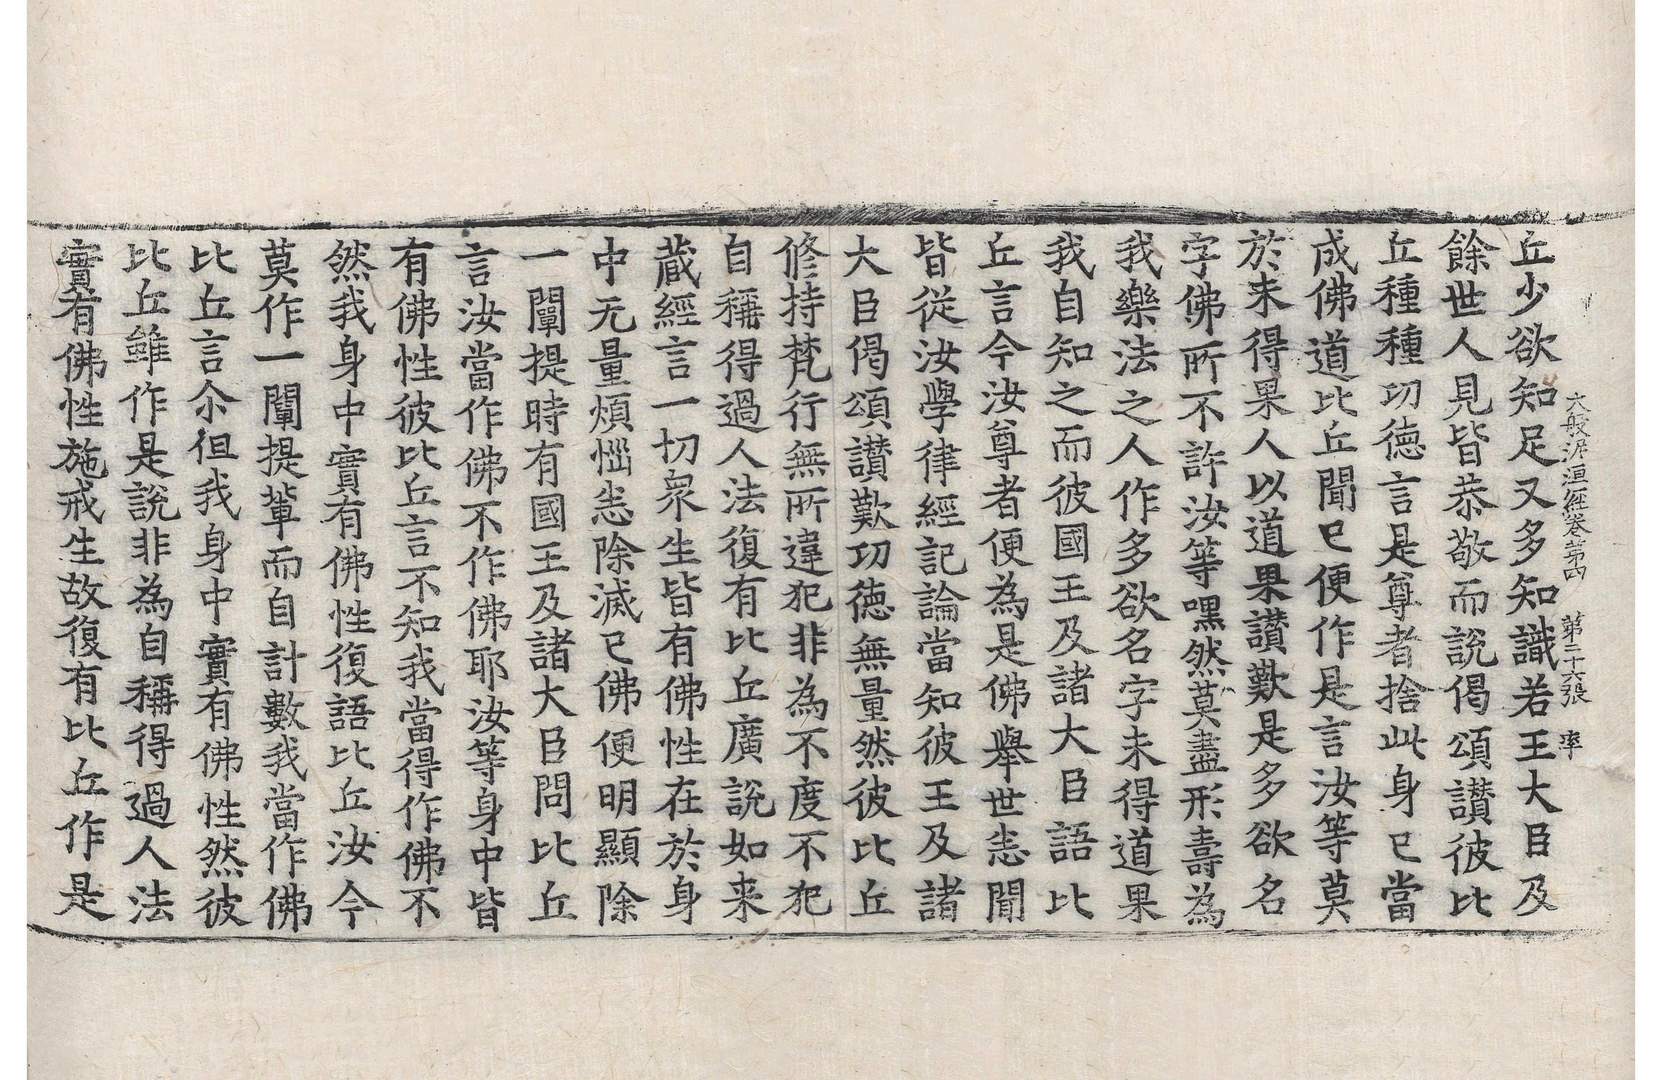 大般泥洹經卷第四 第二十六張 率
丘少欲知足又多知識若王大臣及
餘世人見皆恭敬而說偈頌讃彼比
丘種種功德言是尊者捨此身已當
成佛道比丘聞已便作是言汝等莫
於未得果人以道果讃歎是多欲名
字佛所不許汝等嘿然莫盡形壽為
我樂法之人作多欲名字未得道果
我自知之而彼國王及諸大臣語比
丘言今汝尊者便為是佛舉世悉聞
皆從汝學律經記論當知彼王及諸
大臣偈頌讃歎功徳無量然彼比丘
修持梵行無所違犯非為不度不犯
自稱得過人法復有比丘廣說如来
蔵經言一切衆生皆有佛性在於身
中无量煩惱悉除滅已佛便明顯除
一闡提時有國王及諸大臣問比丘
言汝當作佛不作佛耶汝等身中皆
有佛性彼比丘言不知我當得作佛不
然我身中實有佛性復語比丘汝今
莫作一闡提輩而自計數我當作佛
比丘言尒但我身中實有佛性然彼
比丘雖作是說非為自稱得過人法
實有佛性施戒生故復有比丘作是